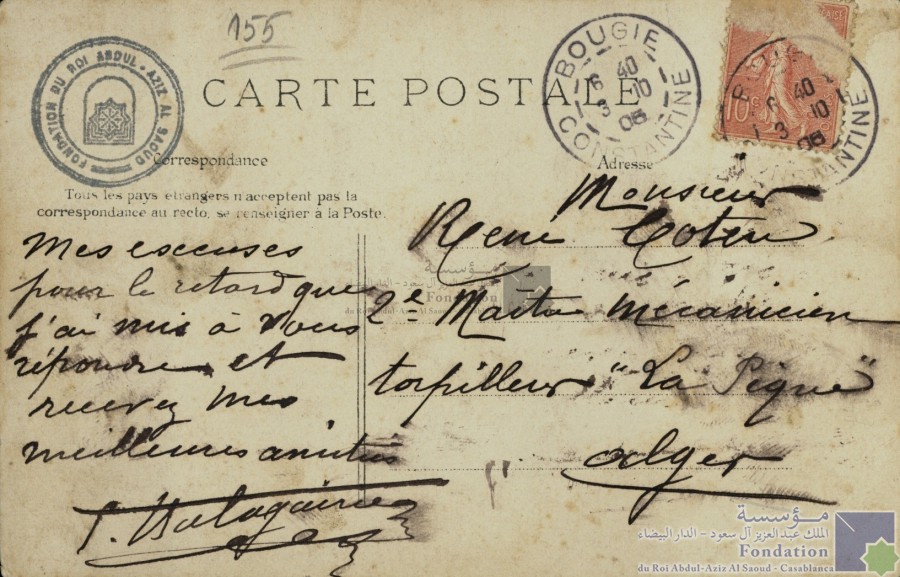 155
FONDATION DU ROI ABDUL-AZIZ AL SAOUD
CARTE POSTALE
BOUGIE
6 40
3 10
05
CONSTANTINE
10c
6 40
3 10
05
Correspondance
Adresse
Tous les pays étrangers n'acceptent pas la
correspondance au recto, se renseigner à la Poste.
Mes excuses
pour le retard que
j'ai mis à vous
répondre et
recevez mes
meilleures amitiés
Monsieur
René
2e Maitre Mécanicien
torpilleur "La Pique"
Alger
مؤسسة
الملك عبد العزيز آل سعود - الدار البيضاء
Fondation
du Roi Abdul-Aziz Al Saoud
مؤسسة
الملك عبد العزيز آل سعود - الدار البيضاء
Fondation
du Roi Abdul-Aziz Al Saoud - Casablanca